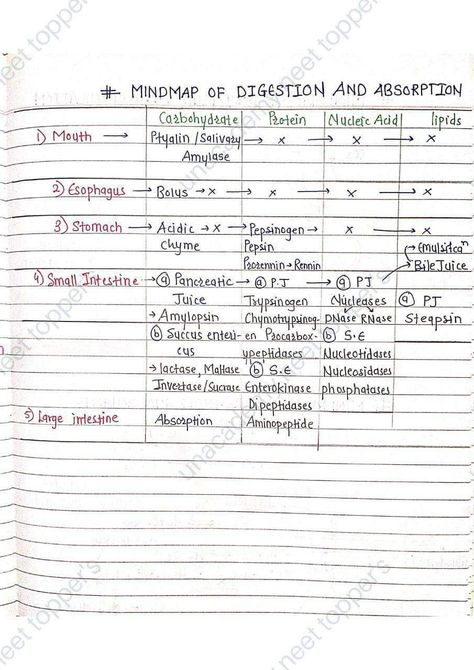 # MINDMAP OF DIGESTION AND ABSORPTION
Carbohydrate Protein Nucleic Acid lipids
1) Mouth → Ptyalin / Salivary → x → x → x
Amylase
2) Esophagus → Bolus → x → x → x → x
3) Stomach → Acidic → x → Pepsinogen → x → x
chyme Pepsin → Emulsificaⁿ
Prorennin → Rennin → Bile Juice
4) Small Intestine → (a) Pancreatic → (a) P.J → (a) PJ
Juice Trypsinogen Nucleases (a) PJ
→ Amylopsin Chymotrypsinog- DNase RNase Steapsin
(b) Succus enteri- en Procarbox- (b) S.E
cus ypeptidases Nucleotidases
→ lactase, Maltase (b) S.E Nucleosidases
Invertase/Sucrase Enterokinase phosphatases
Dipeptidases
5) Large intestine Absorption Aminopeptide
unacademy neet topper's
unacademy neet topper's
neet topper's
neet topper's